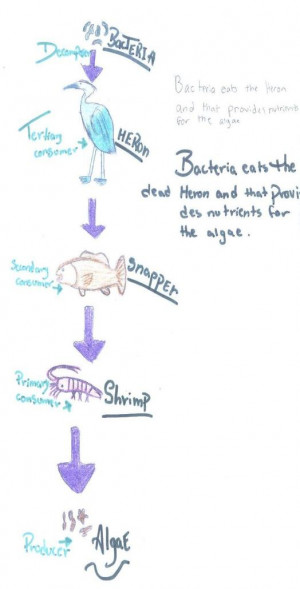 BACTERIA
Decomposer
Bacteria eats the heron
and that provides nutrients
for the algae
Tertiary
consumer
HERON
Bacteria eats the
dead Heron and that Provi
des nutrients for
the algae.
Secondary
consumer
Snapper
Primary
consumer
Shrimp
Producer
AlgaE